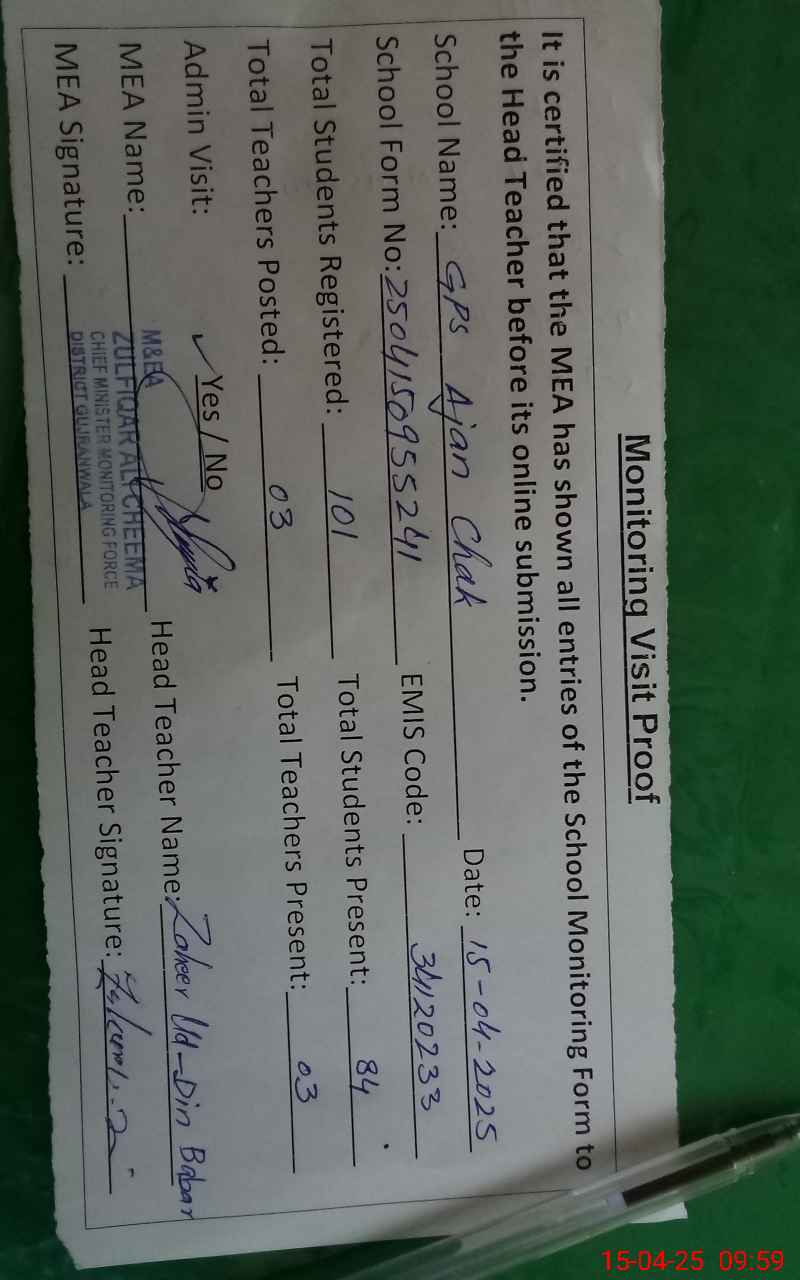 Monitoring Visit Proof
It is certified that the MEA has shown all entries of the School Monitoring Form to
the Head Teacher before its online submission.
School Name: GPS Ajan Chak Date: 15-04-2025
School Form No: 2504150955241 EMIS Code: 34120233
Total Students Registered: 101 Total Students Present: 84
Total Teachers Posted: 03 Total Teachers Present: 03
Admin Visit: ✓ Yes / No
MEA Name: Head Teacher Name: Zaheer Ud-Din Babar
M&EA
ZULFIQAR ALI CHEEMA
CHIEF MINISTER MONITORING FORCE
DISTRICT GUJRANWALA
MEA Signature: Head Teacher Signature:
15-04-25 09:59